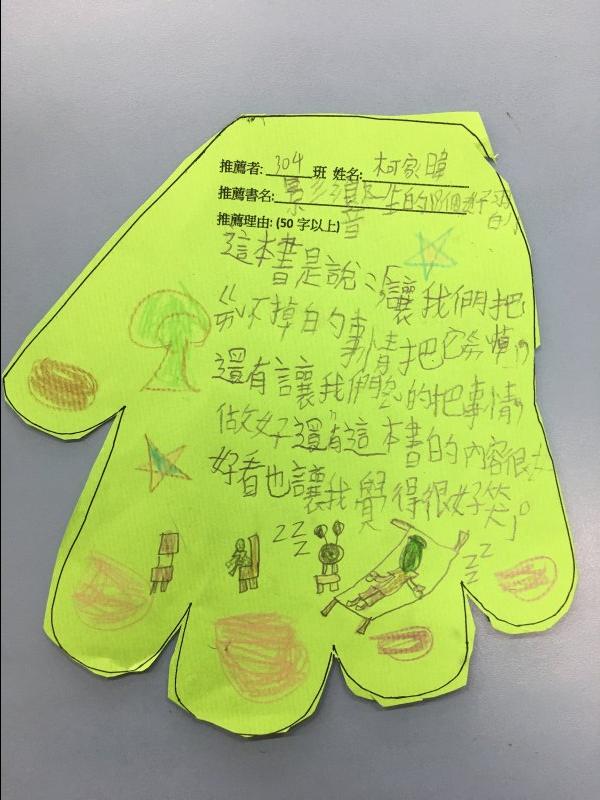 推薦者: 304 班 姓名: 柯家暐
推薦書名: 影響 生的 個好習
推薦理由: (50 字以上)
這本書是說:讓我們把
不掉的事情把它
還有讓我們 的把事情
做好還有這本書的內容很
好看也讓我覺得很好笑。
ZZZ
ZZ